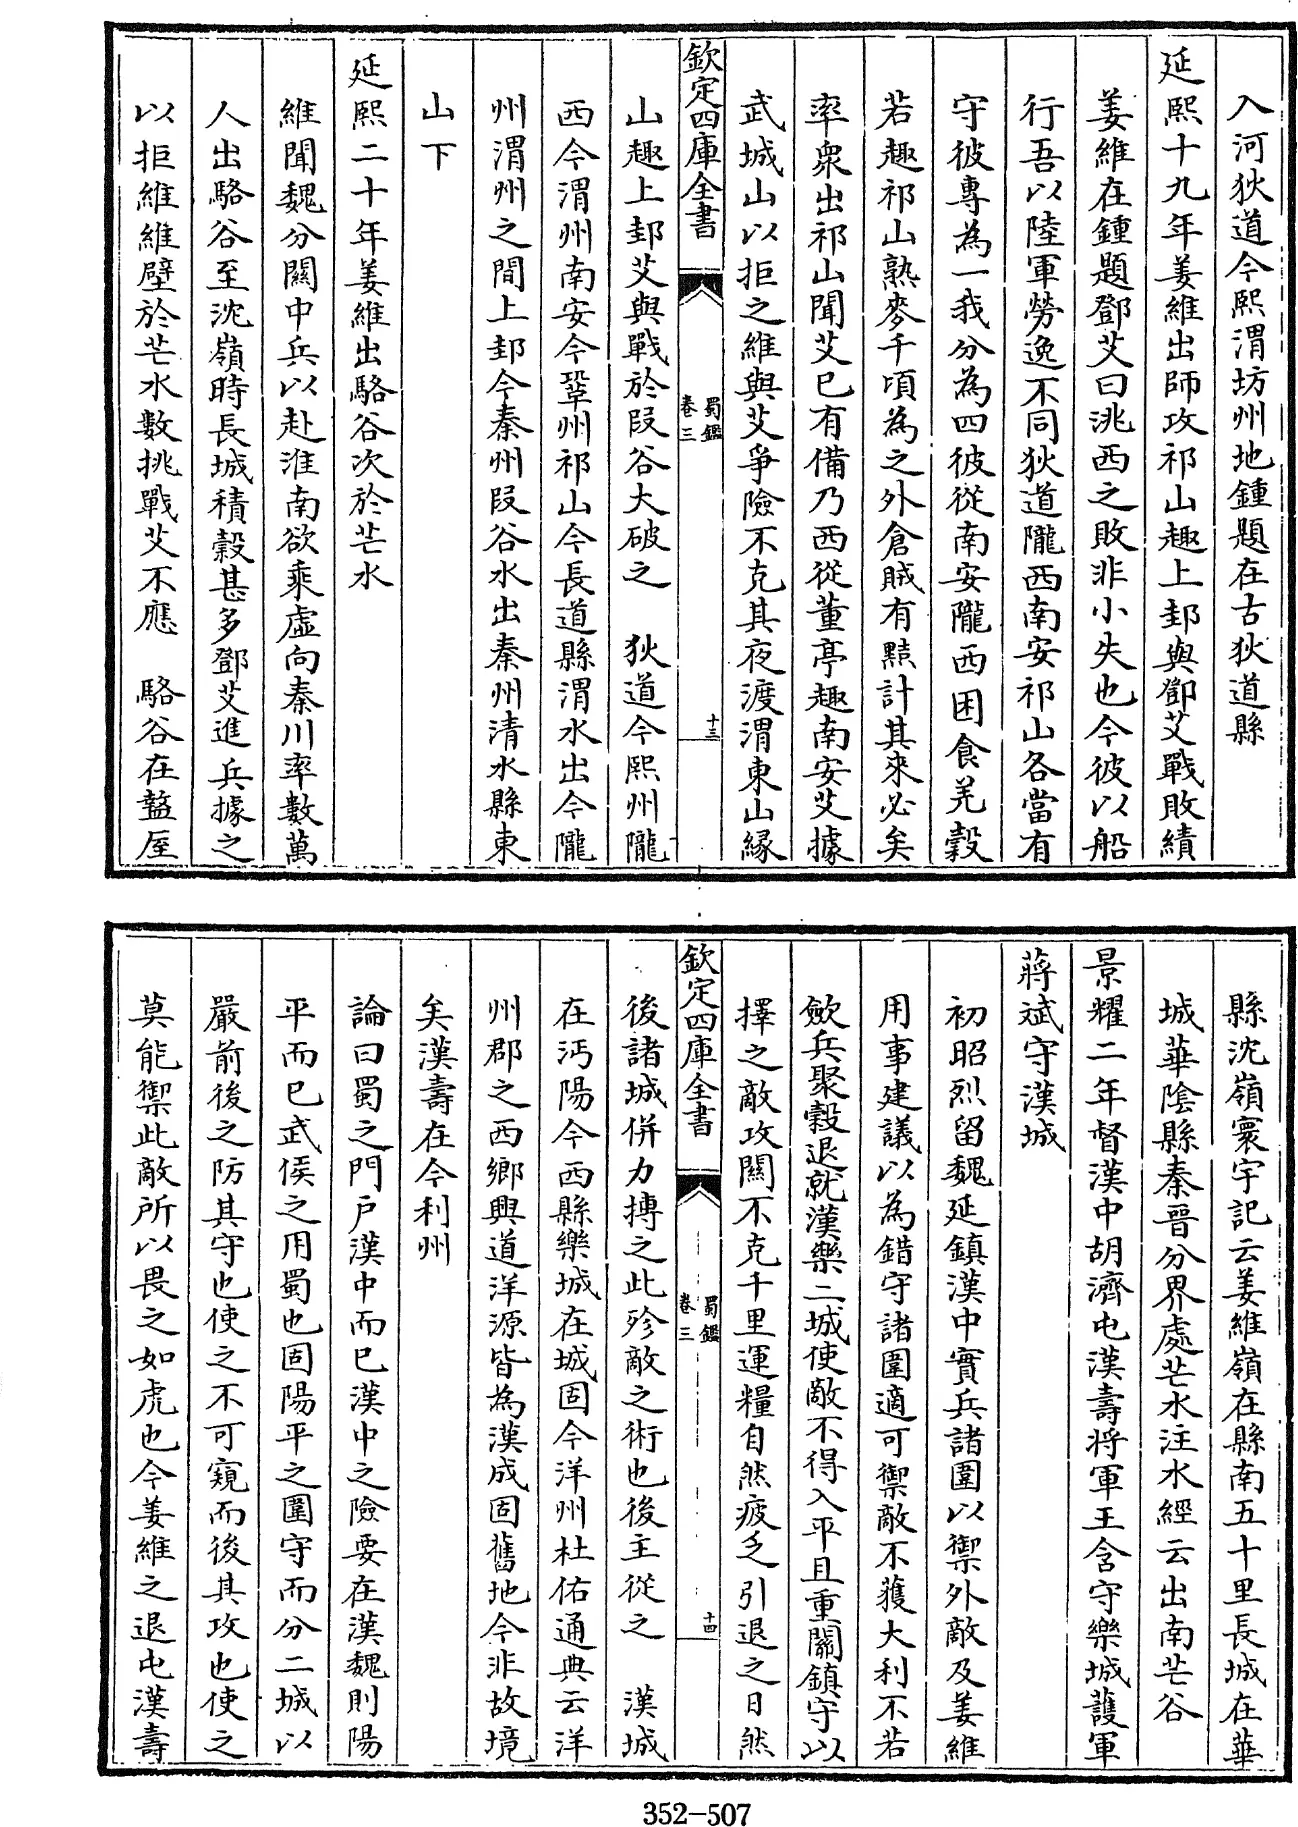 入河狄道今熙渭坊州地鍾題在古狄道縣
延熙十九年姜維出師攻祁山趣上邽與鄧艾戰敗績
姜維在鍾題鄧艾曰洮西之敗非小失也今彼以船
行吾以陸軍勞逸不同狄道隴西南安祁山各當有
守彼專為一我分為四彼從南安隴西困食羌穀
若趣祁山熟麥千頃為之外倉賊有黠計其來必矣
率衆出祁山聞艾已有備乃西從董亭趣南安艾據
武城山以拒之維與艾爭險不克其夜渡渭東山緣
欽定四庫全書
蜀鑑
卷三
十三
山趣上邽艾與戰於段谷大破之　狄道今熙州隴
西今渭州南安今鞏州祁山今長道縣渭水出今隴
州渭州之間上邽今秦州段谷水出秦州清水縣東
山下
延熙二十年姜維出駱谷次於芒水
維聞魏分關中兵以赴淮南欲乘虛向秦川率數萬
人出駱谷至沈嶺時長城積穀甚多鄧艾進兵據之
以拒維維壁於芒水數挑戰艾不應　駱谷在盩厔
縣沈嶺寰宇記云姜維嶺在縣南五十里長城在華
城華陰縣秦晉分界處芒水注水經云出南芒谷
景耀二年督漢中胡濟屯漢壽將軍王含守樂城護軍
蔣斌守漢城
初昭烈留魏延鎮漢中實兵諸圍以禦外敵及姜維
用事建議以為錯守諸圍適可禦敵不獲大利不若
斂兵聚穀退就漢樂二城使敵不得入平且重關鎮守以
擇之敵攻關不克千里運糧自然疲乏引退之日然
欽定四庫全書
蜀鑑
卷三
十四
後諸城併力搏之此殄敵之術也後主從之　漢城
在沔陽今西縣樂城在城固今洋州杜佑通典云洋
州郡之西鄉興道洋源皆為漢成固舊地今非故境
矣漢壽在今利州
論曰蜀之門戶漢中而已漢中之險要在漢魏則陽
平而已武侯之用蜀也固陽平之圍守而分二城以
嚴前後之防其守也使之不可窺而後其攻也使之
莫能禦此敵所以畏之如虎也今姜維之退屯漢壽
352-507